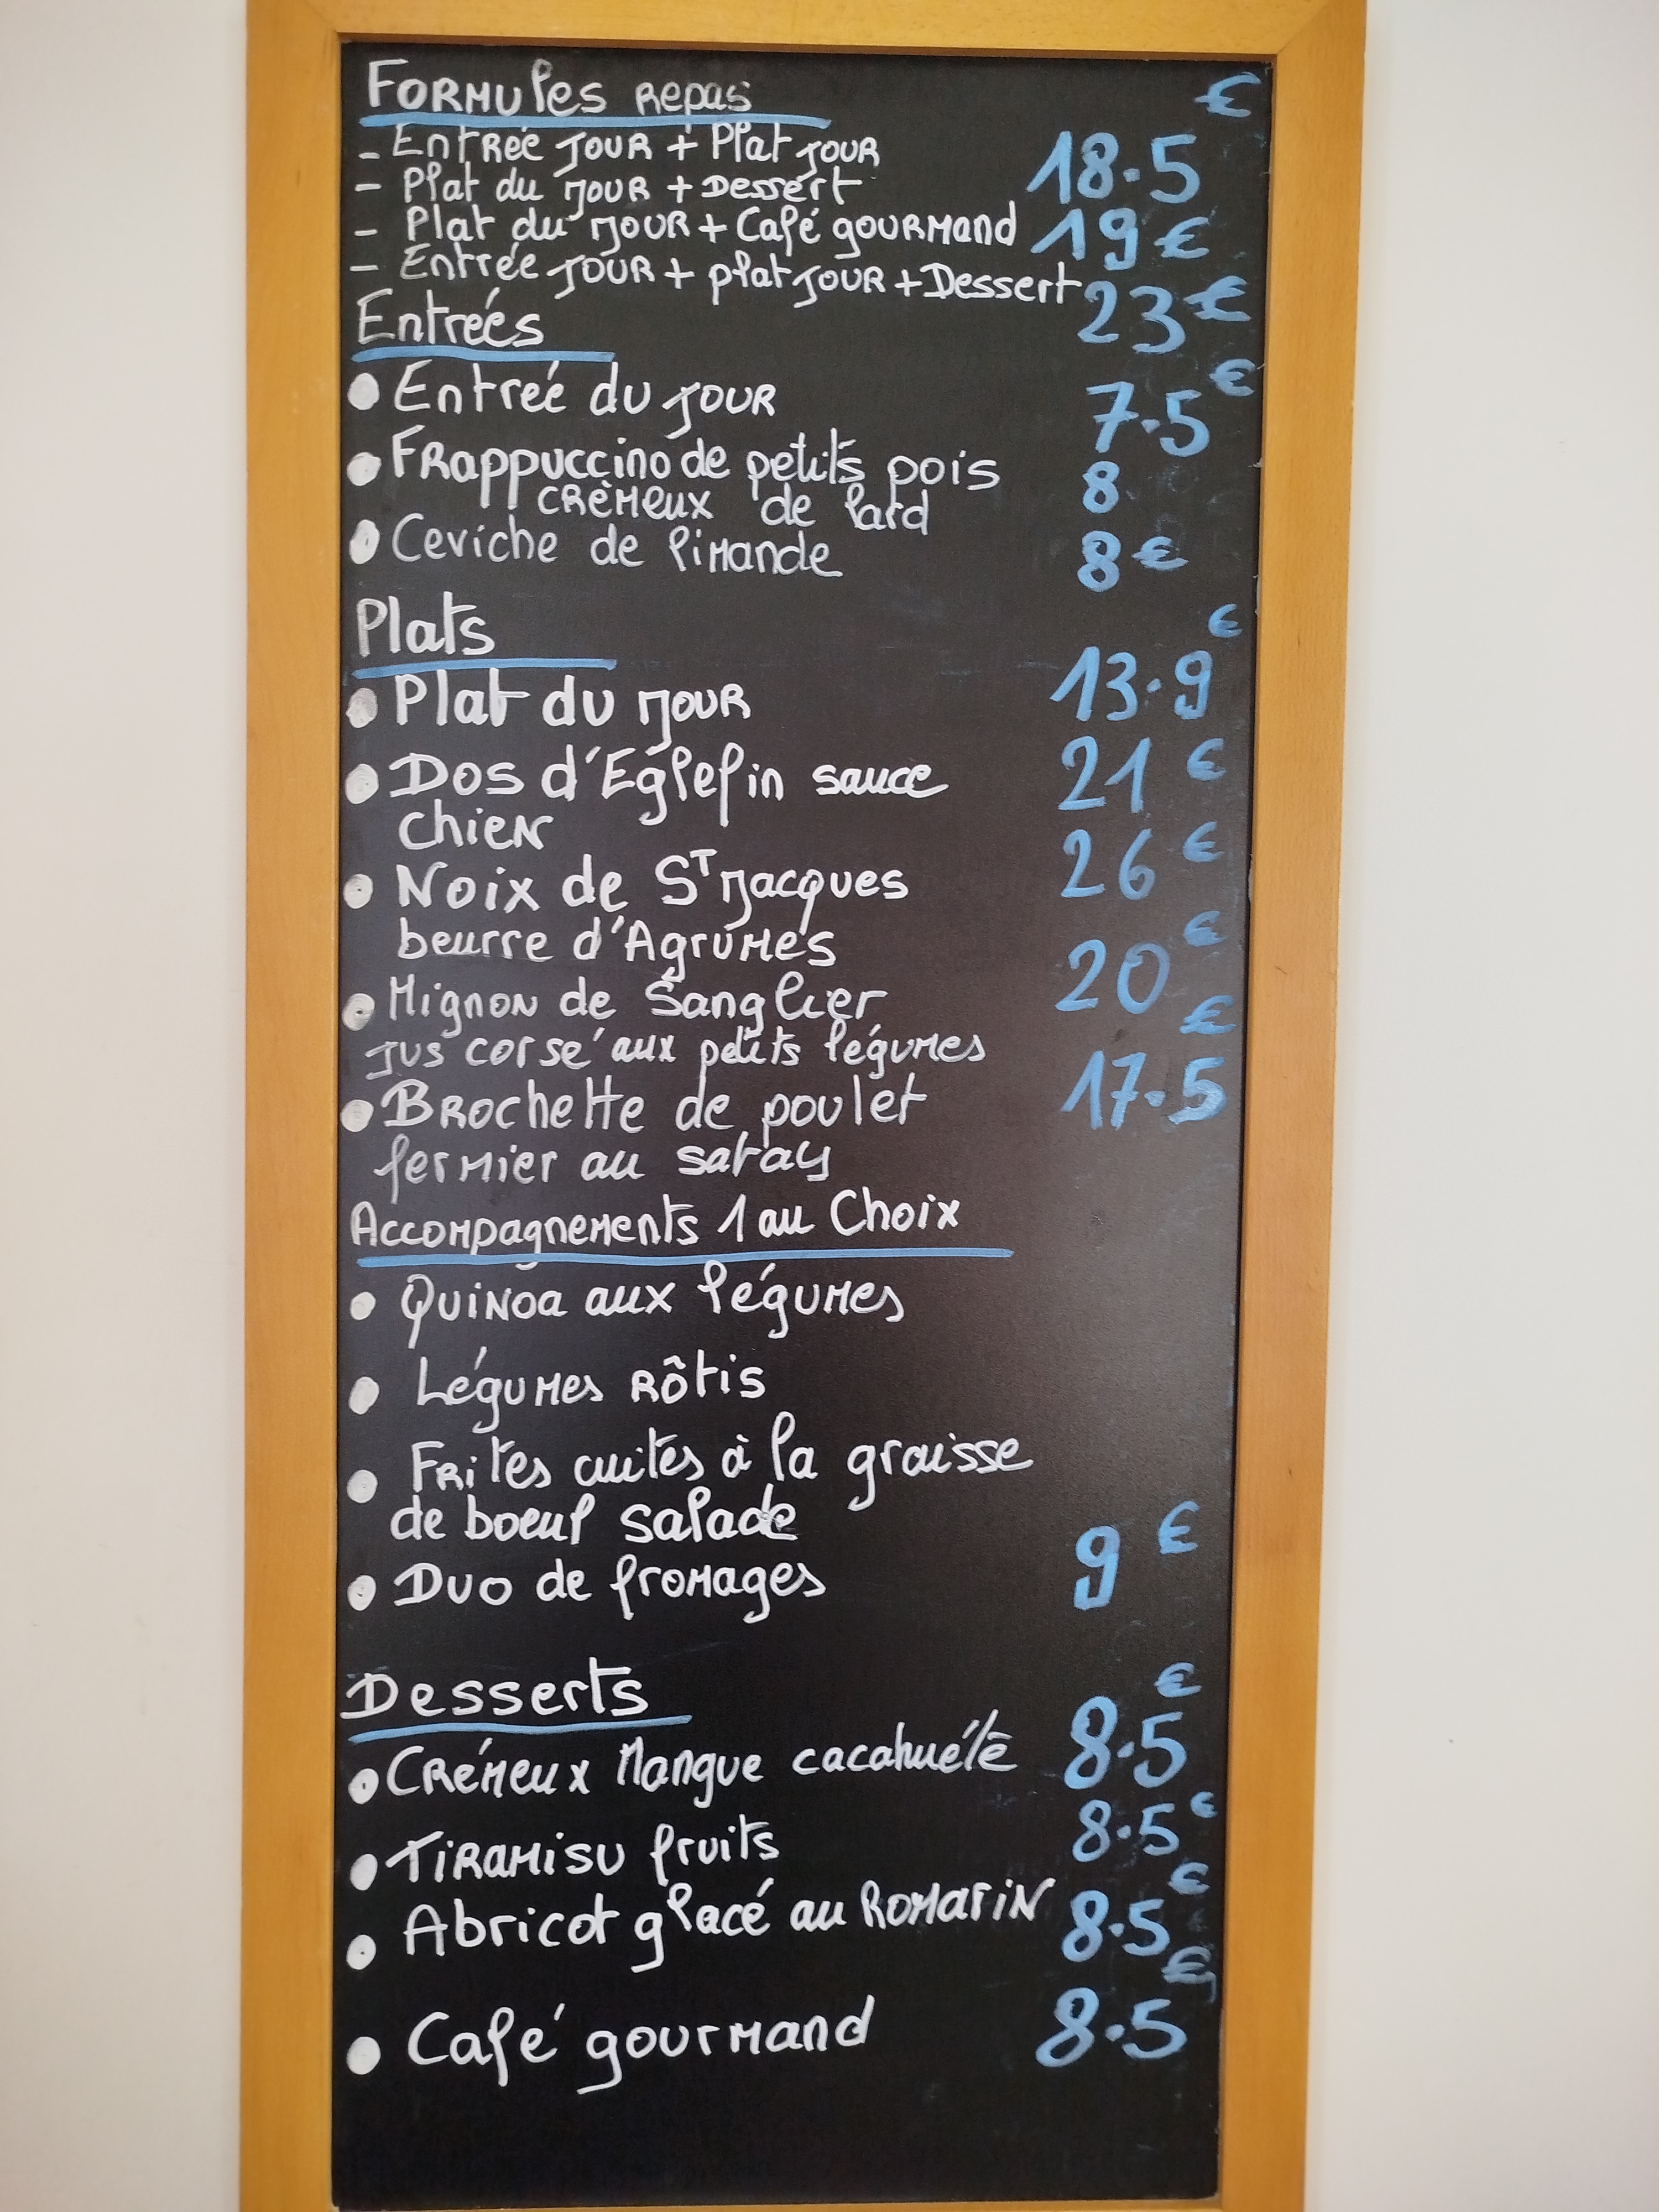 Formules Repas €
- Entrée Jour + Plat Jour 18.5
- Plat du Jour + Dessert
- Plat du Jour + Café gourmand 19 €
- Entrée Jour + plat Jour + Dessert 23 €
Entrées
• Entreé du Jour 7.5 €
• Frappuccino de petits pois 8
crèmeux de lard
• Ceviche de limande 8 €
Plats €
• Plat du Jour 13.9
• Dos d'Églefin sauce 21 €
Chien
• Noix de St Jacques 26 €
beurre d'Agrumes
• Mignon de Sanglier 20 €
Jus corsé aux petits légumes
• Brochette de poulet 17.5 €
fermier au satay
Accompagnements 1 au Choix
• Quinoa aux légumes
• Légumes Rôtis
• Frites cuites à la graisse
de boeuf salade
• Duo de fromages 9 €
Desserts €
• Crémeux Mangue cacahuète 8.5
• Tiramisu fruits 8.5 €
• Abricot glacé au Romarin 8.5 €
• Café gourmand 8.5 €